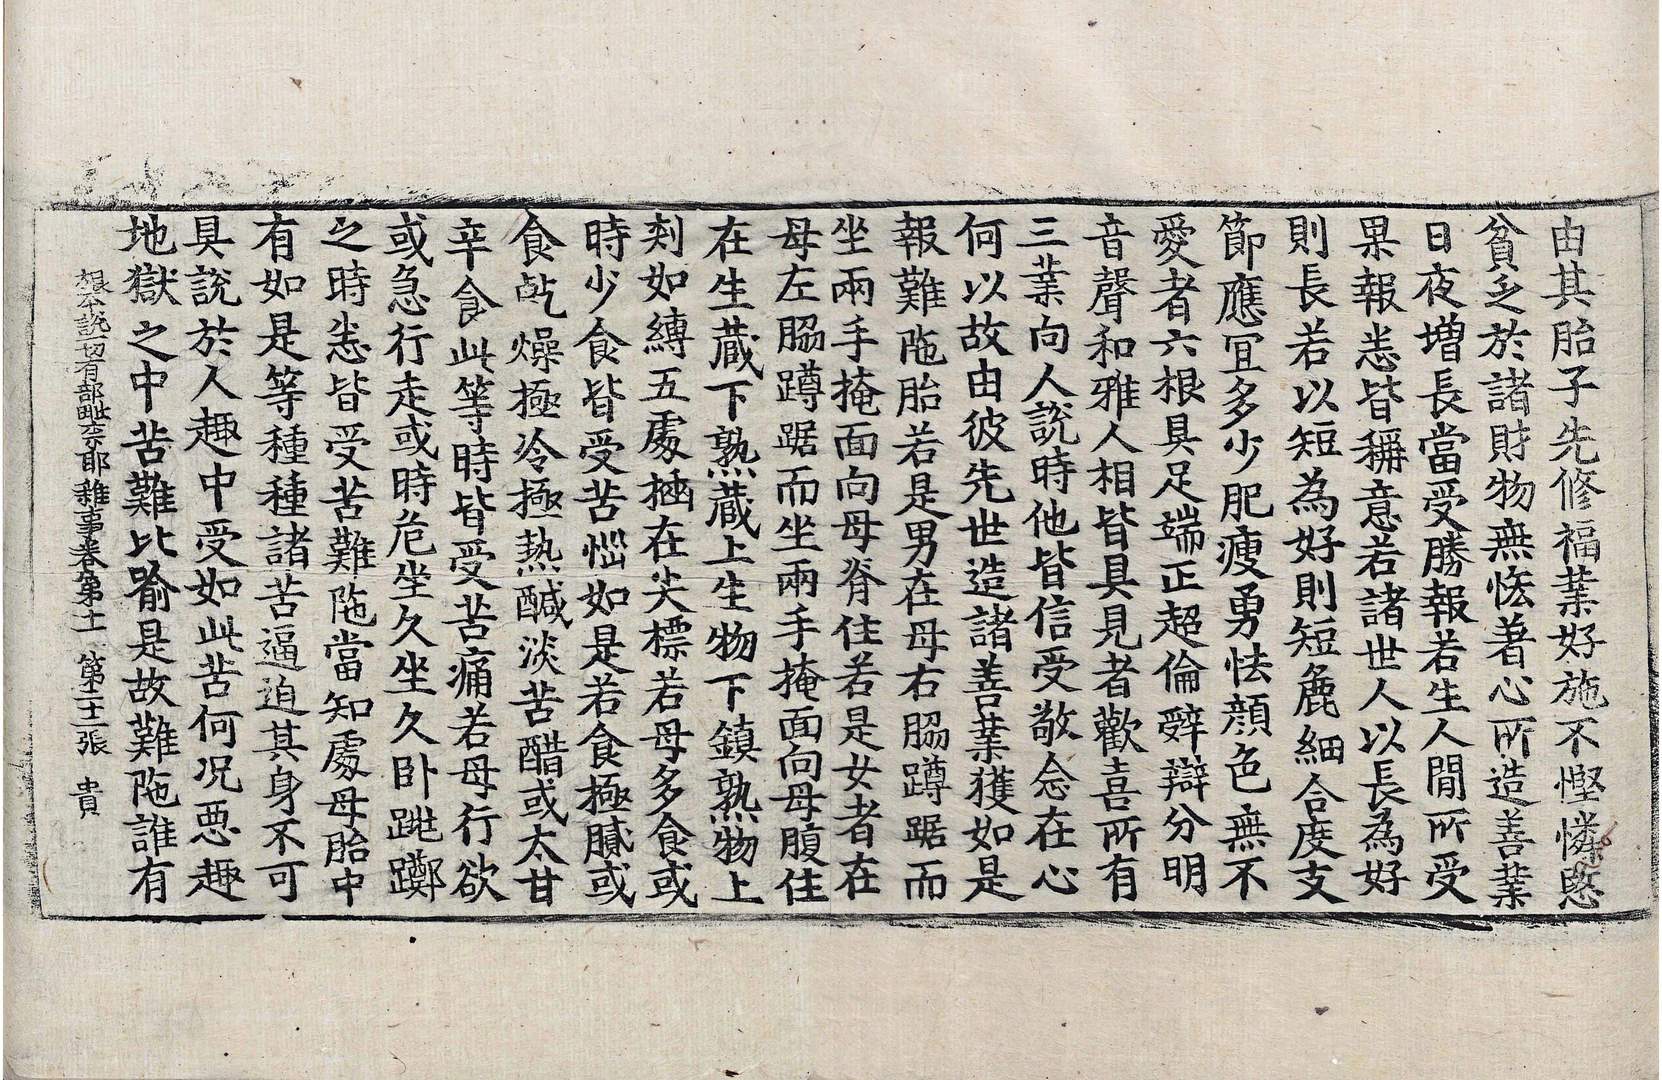 由其胎子先修福業好施不慳憐愍
貧乏於諸財物無悋著心所造善業
日夜增長當受勝報若生人間所受
果報悉皆稱意若諸世人以長為好
則長若以短為好則短麁細合度支
節應宜多少肥瘦勇怯顔色無不
愛者六根具足端正超倫辭辯分明
音聲和雅人相皆具見者歡喜所有
三業向人說時他皆信受敬念在心
何以故由彼先世造諸善業獲如是
報難陁胎若是男在母右脇蹲踞而
坐兩手掩面向母脊住若是女者在
母左脇蹲踞而坐兩手掩面向母腹住
在生蔵下熟蔵上生物下鎮熟物上
刾如縛五處揷在尖標若母多食或
時少食皆受苦惱如是若食極膩或
食乾燥極冷極熱醎淡苦醋或太甘
辛食此等時皆受苦痛若母行欲
或急行走或時危坐久坐久卧跳躑
之時悉皆受苦難陁當知處母胎中
有如是等種種諸苦逼迫其身不可
具說於人趣中受如此苦何况惡趣
地獄之中苦難比喻是故難陁誰有
根本說一切有部毗奈耶雜事卷第十一 第二十二張 貴